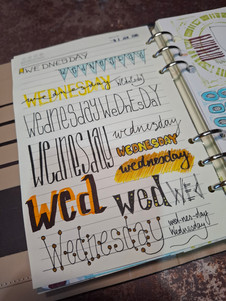 WEDNESDAY
WEDNESDAY
WEDNESDAY Wednesday
Wednesday WEDNESDAY
WEDNESDAY wednesday
WEDNESDAY
wednesday
wed wed WED
Wednesday wed-nes-day
Wednesday!